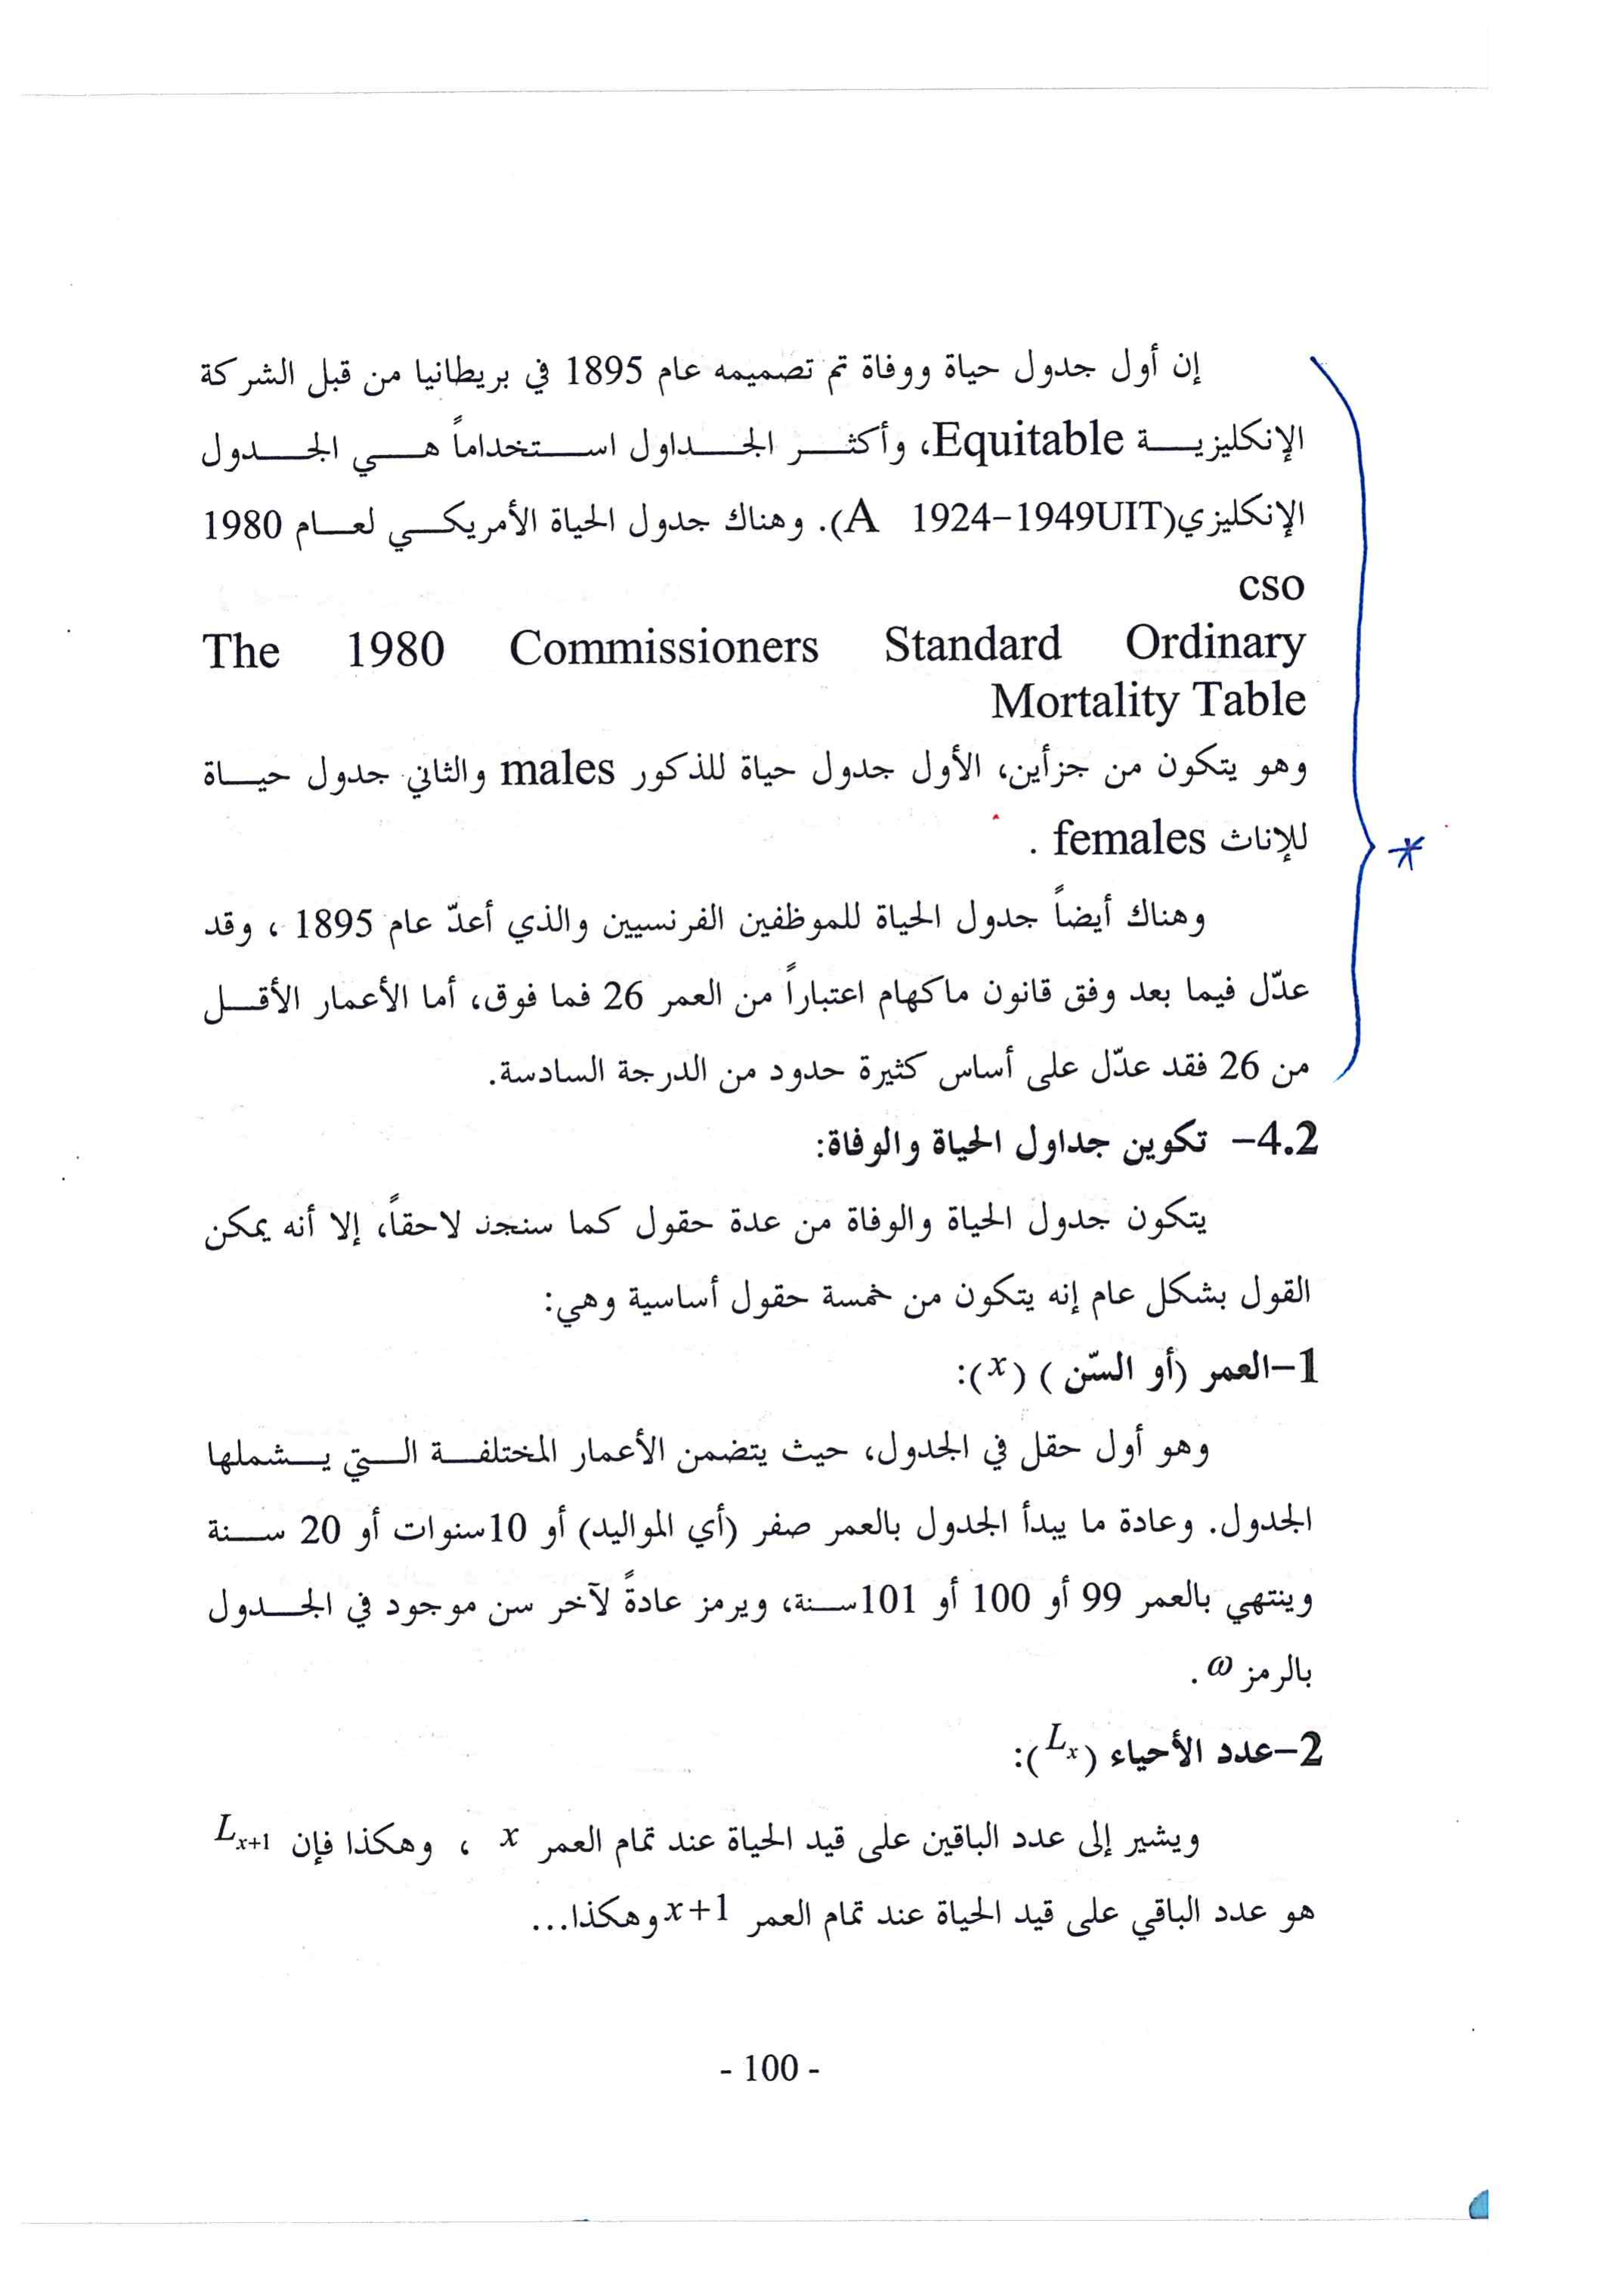 إن أول جدول حياة ووفاة تم تصميمه عام 1895 في بريطانيا من قبل الشركة
الإنكليزية Equitable، وأكثر الجداول استخداماً هي الجدول
الإنكليزي(A 1924-1949UIT). وهناك جدول الحياة الأمريكي لعام 1980
cso
The 1980 Commissioners Standard Ordinary
Mortality Table
وهو يتكون من جزأين، الأول جدول حياة للذكور males والثاني جدول حياة
للإناث females .
وهناك أيضاً جدول الحياة للموظفين الفرنسيين والذي أعدّ عام 1895 ، وقد
عدّل فيما بعد وفق قانون ماكهام اعتباراً من العمر 26 فما فوق، أما الأعمار الأقل
من 26 فقد عدّل على أساس كثيرة حدود من الدرجة السادسة.
4.2- تكوين جداول الحياة والوفاة:
يتكون جدول الحياة والوفاة من عدة حقول كما سنجد لاحقاً، إلا أنه يمكن
القول بشكل عام إنه يتكون من خمسة حقول أساسية وهي:
1-العمر (أو السّن ) (x):
وهو أول حقل في الجدول، حيث يتضمن الأعمار المختلفة التي يشملها
الجدول. وعادة ما يبدأ الجدول بالعمر صفر (أي المواليد) أو 10سنوات أو 20 سنة
وينتهي بالعمر 99 أو 100 أو 101سنة، ويرمز عادةً لآخر سن موجود في الجدول
بالرمز ω .
2-عدد الأحياء (Lx):
ويشير إلى عدد الباقين على قيد الحياة عند تمام العمر x ، وهكذا فإن Lx+1
هو عدد الباقي على قيد الحياة عند تمام العمر x+1 وهكذا...
- 100 -